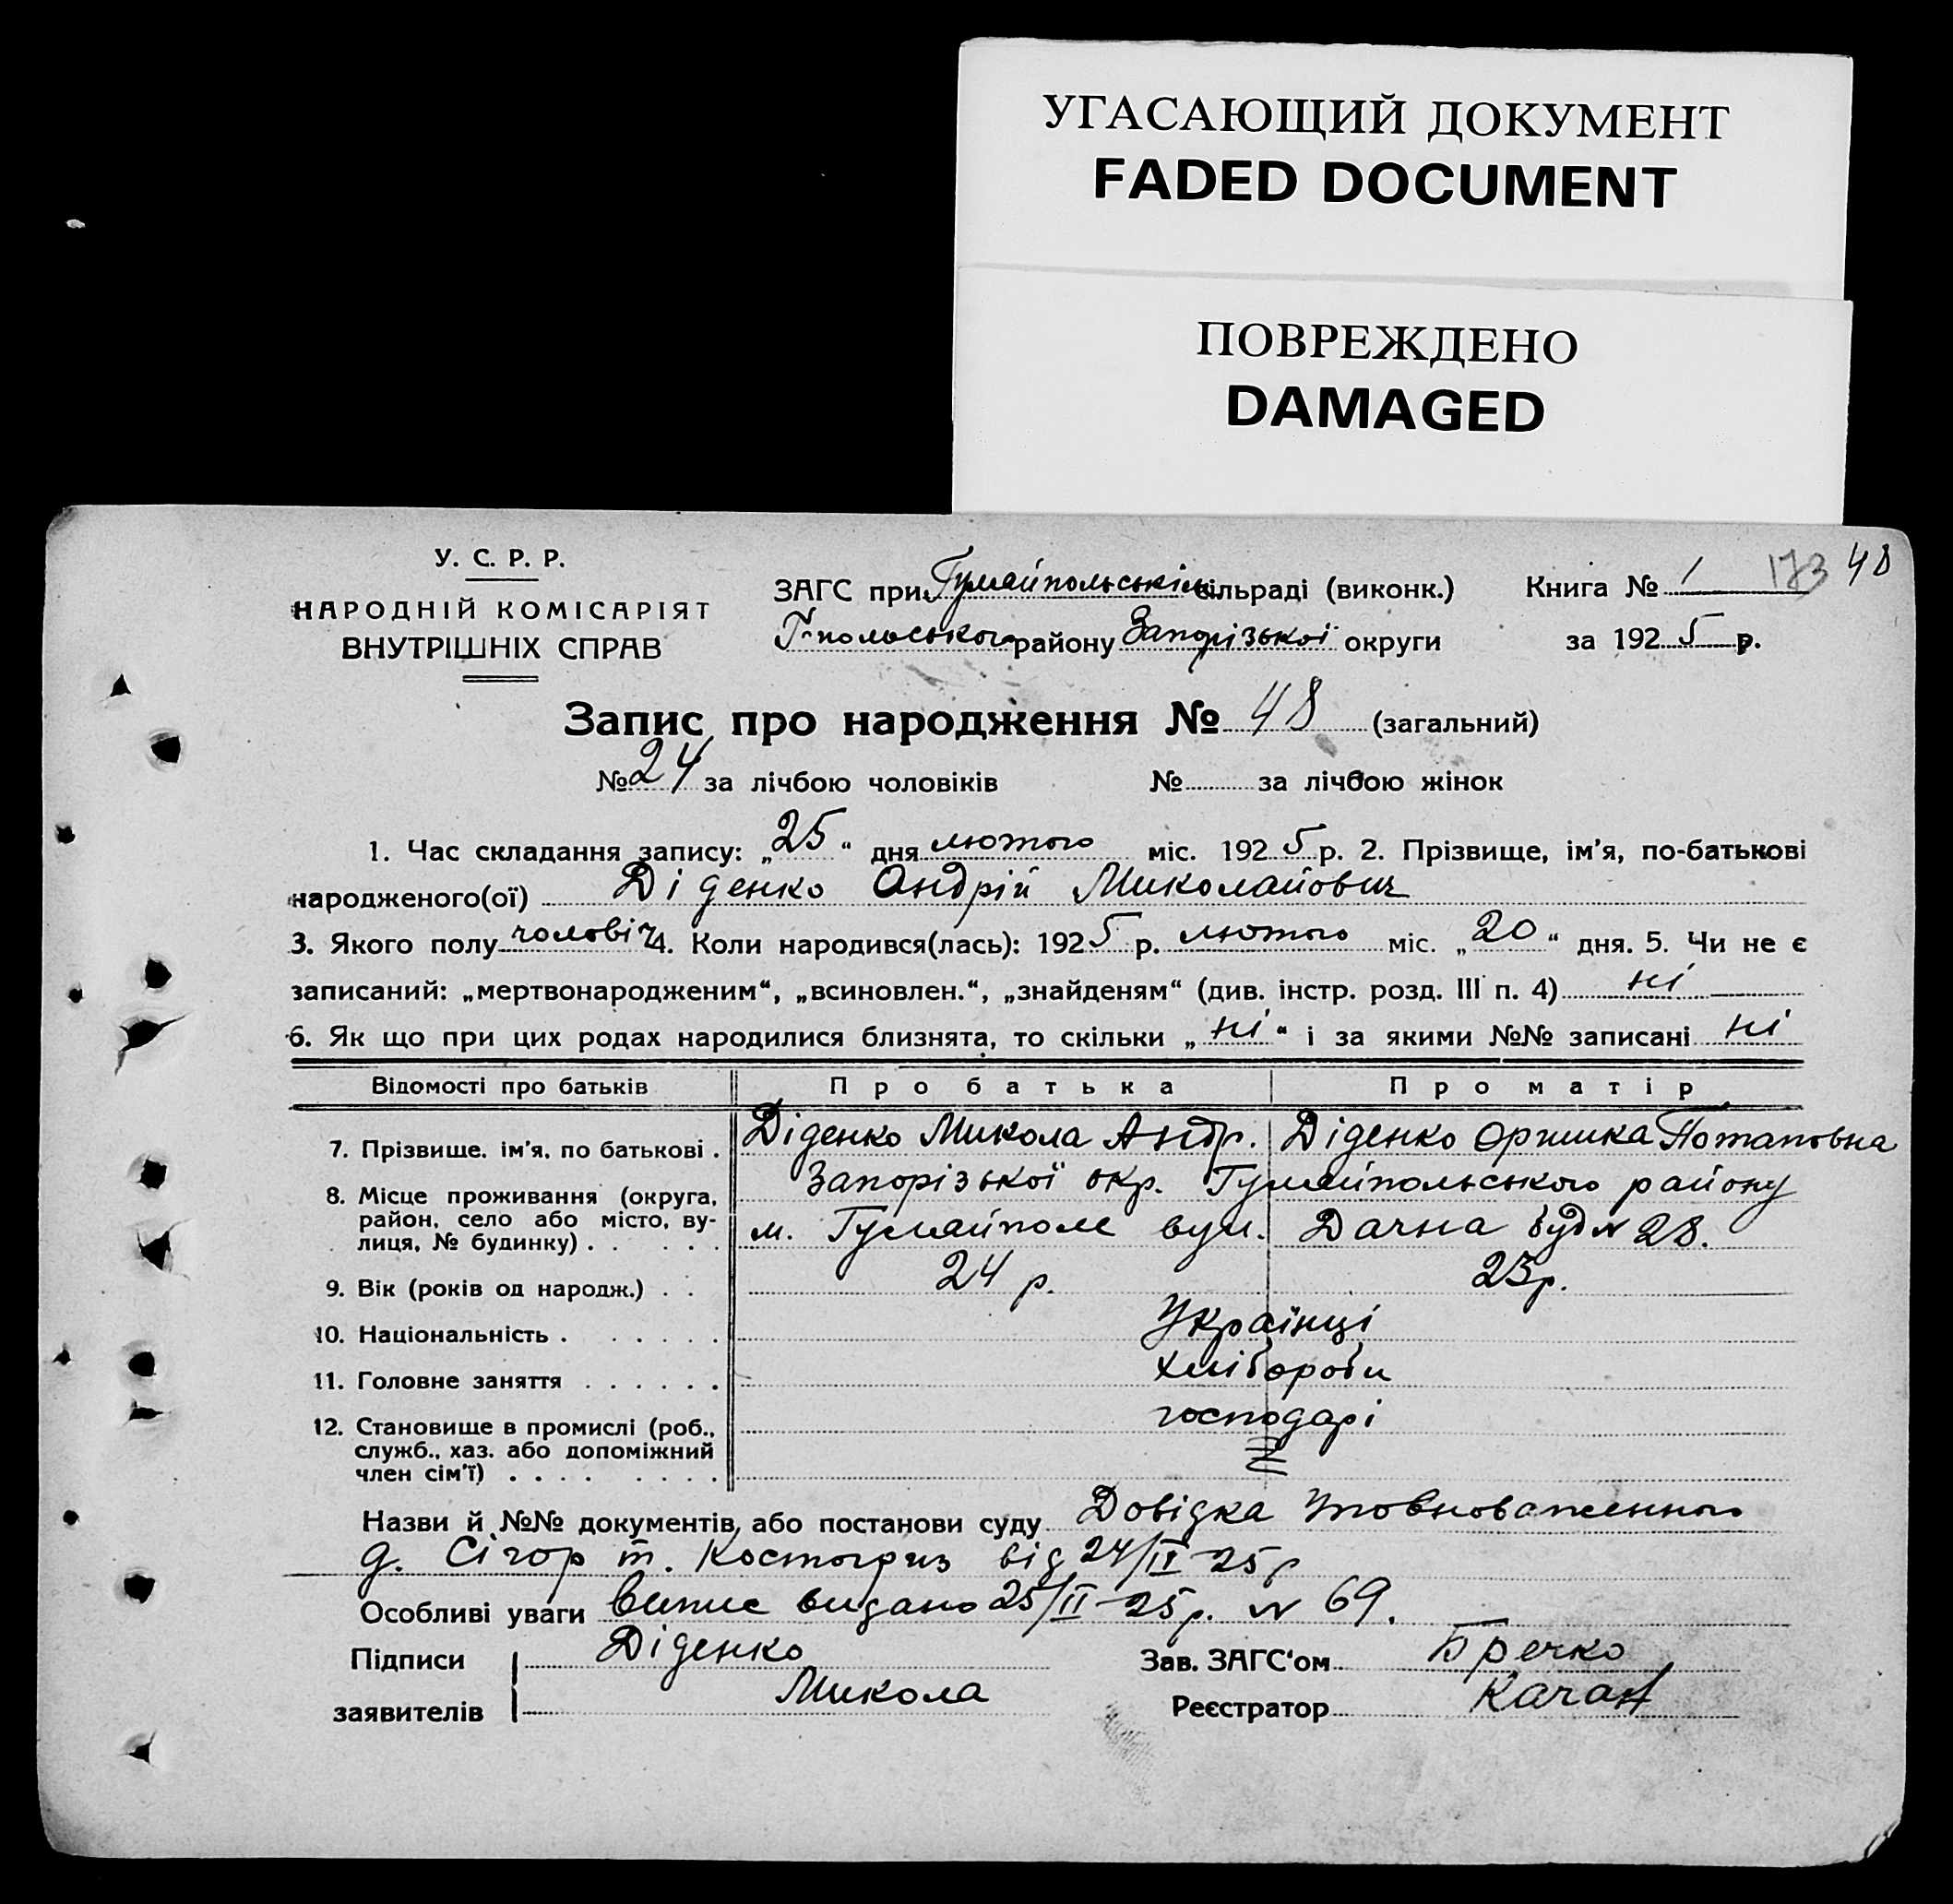 УГАСАЮЩИЙ ДОКУМЕНТ
FADED DOCUMENT
ПОВРЕЖДЕНО
DAMAGED
173 48
У. С. Р. Р.
НАРОДНІЙ КОМІСАРІЯТ
ВНУТРІШНІХ СПРАВ
ЗАГС при Гуляйпольській сільраді (виконк.)
Г-польського району Запорізької округи
Книга № 1
за 1925 р.
Запис про народження № 48 (загальний)
№ 24 за лічбою чоловіків № за лічбою жінок
1. Час складання запису: „25“ дня лютого міс. 1925 р. 2. Прізвище, ім'я, по-батькові
народженого(ої) Діденко Андрій Миколайович
3. Якого полу чоловіч 4. Коли народився(лась): 1925 р. лютого міс. „20“ дня. 5. Чи не є
записаний: „мертвонародженим“, „всиновлен.“, „знайденям“ (див. інстр. розд. III п. 4) ні
6. Як що при цих родах народилися близнята, то скільки „ні“ і за якими №№ записані ні
Відомості про батьків Про батька Про матір
7. Прізвище, ім'я, по батькові . Діденко Микола Андр. Діденко Оришка Потаповна
8. Місце проживання (округа, Запорізької окр. Гуляйпольського району
район, село або місто, ву-
лиця, № будинку) . . . . . м. Гуляйполе вул. Дачна буд № 28.
9. Вік (років од народж.) . . 24 р. 23 р.
10. Національність . . . . . . Українці
11. Головне заняття . . . . . . хлібороби
12. Становище в промислі (роб., господарі
служб., хаз. або допоміжний
член сім'ї) . . . . . . . .
Назви й №№ документів, або постанови суду Довідка Уповноваженного
д. Сігор т. Костогриз від 24/II-25р
Особливі уваги Випис видано 25/II-25р. № 69.
Підписи Діденко
заявителів Микола
Зав. ЗАГС'ом Бречко
Реєстратор Качан